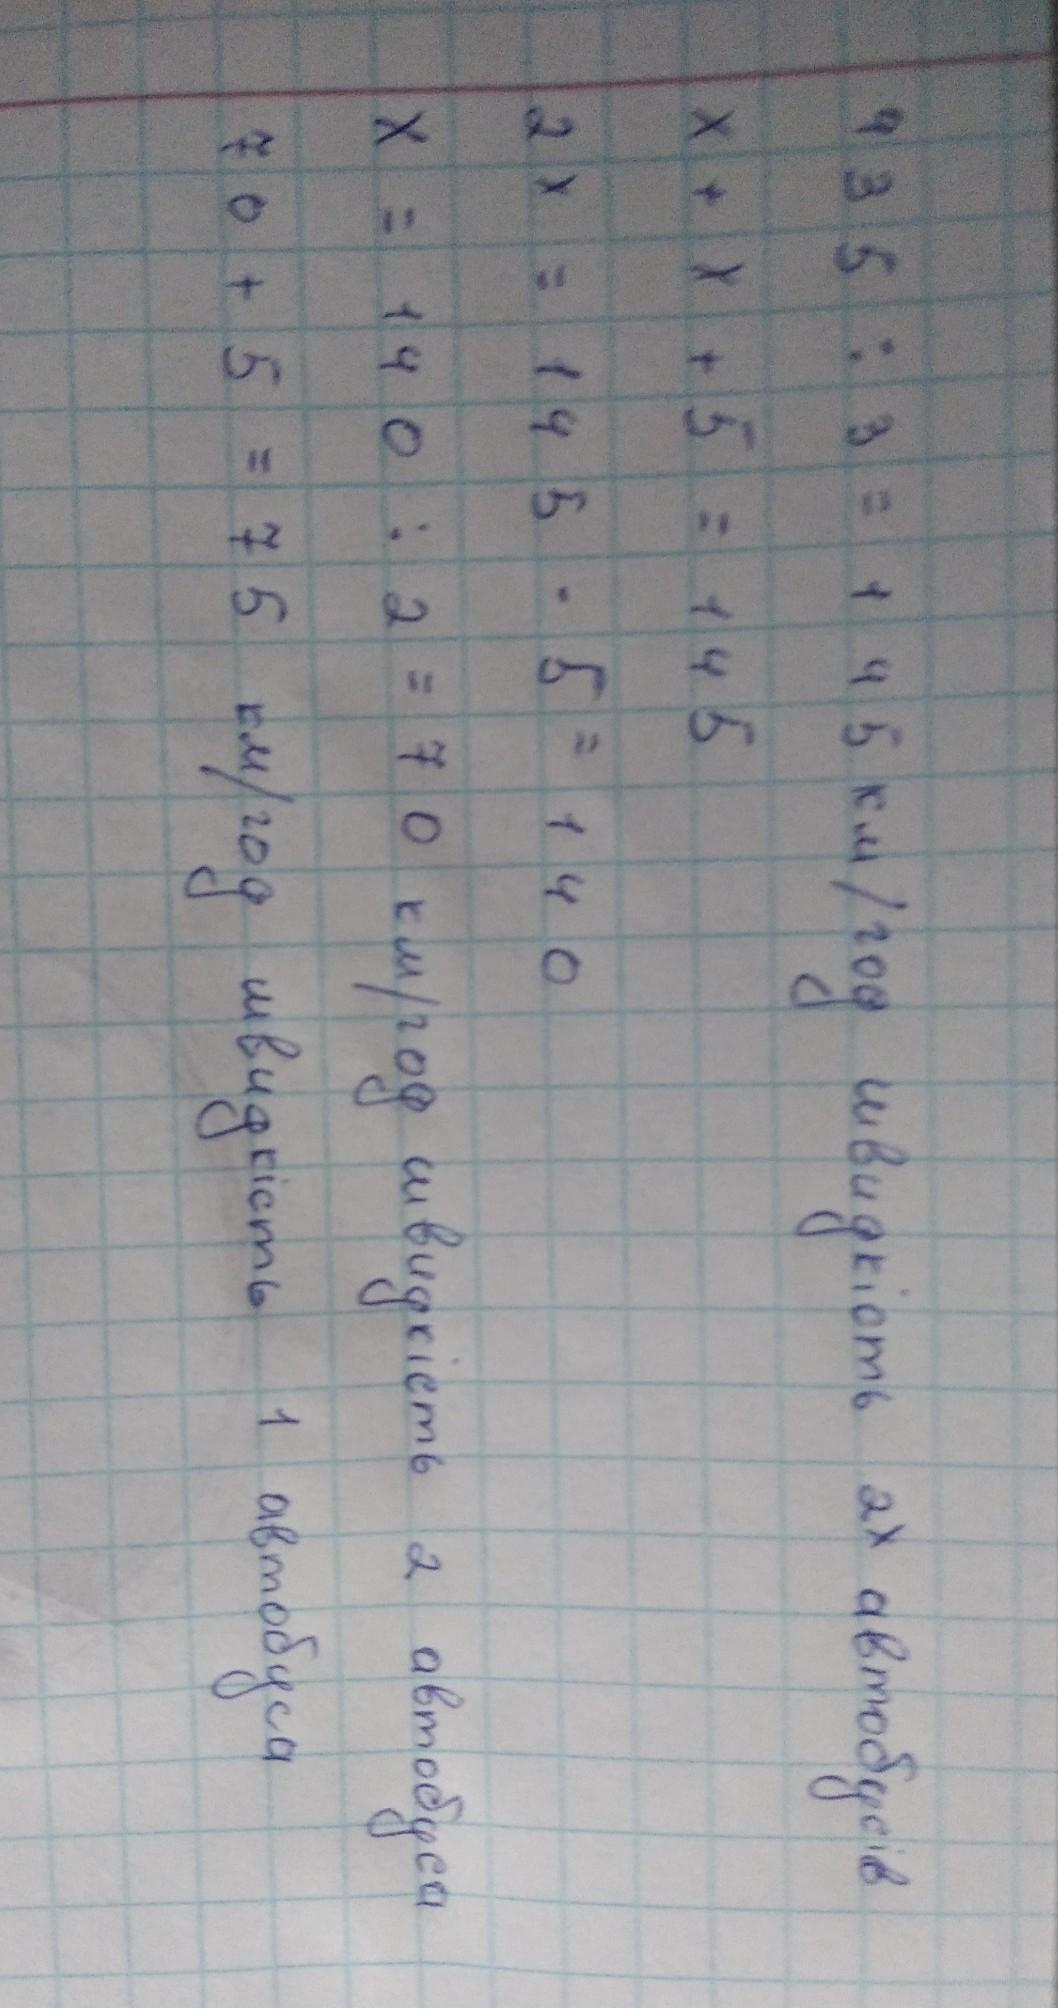 435 : 3 = 145 км/год швидкість 2х автобусів
х + х + 5 = 145
2х = 145 - 5 = 140
х = 140 : 2 = 70 км/год швидкість 2 автобуса
70 + 5 = 75 км/год швидкість 1 автобуса